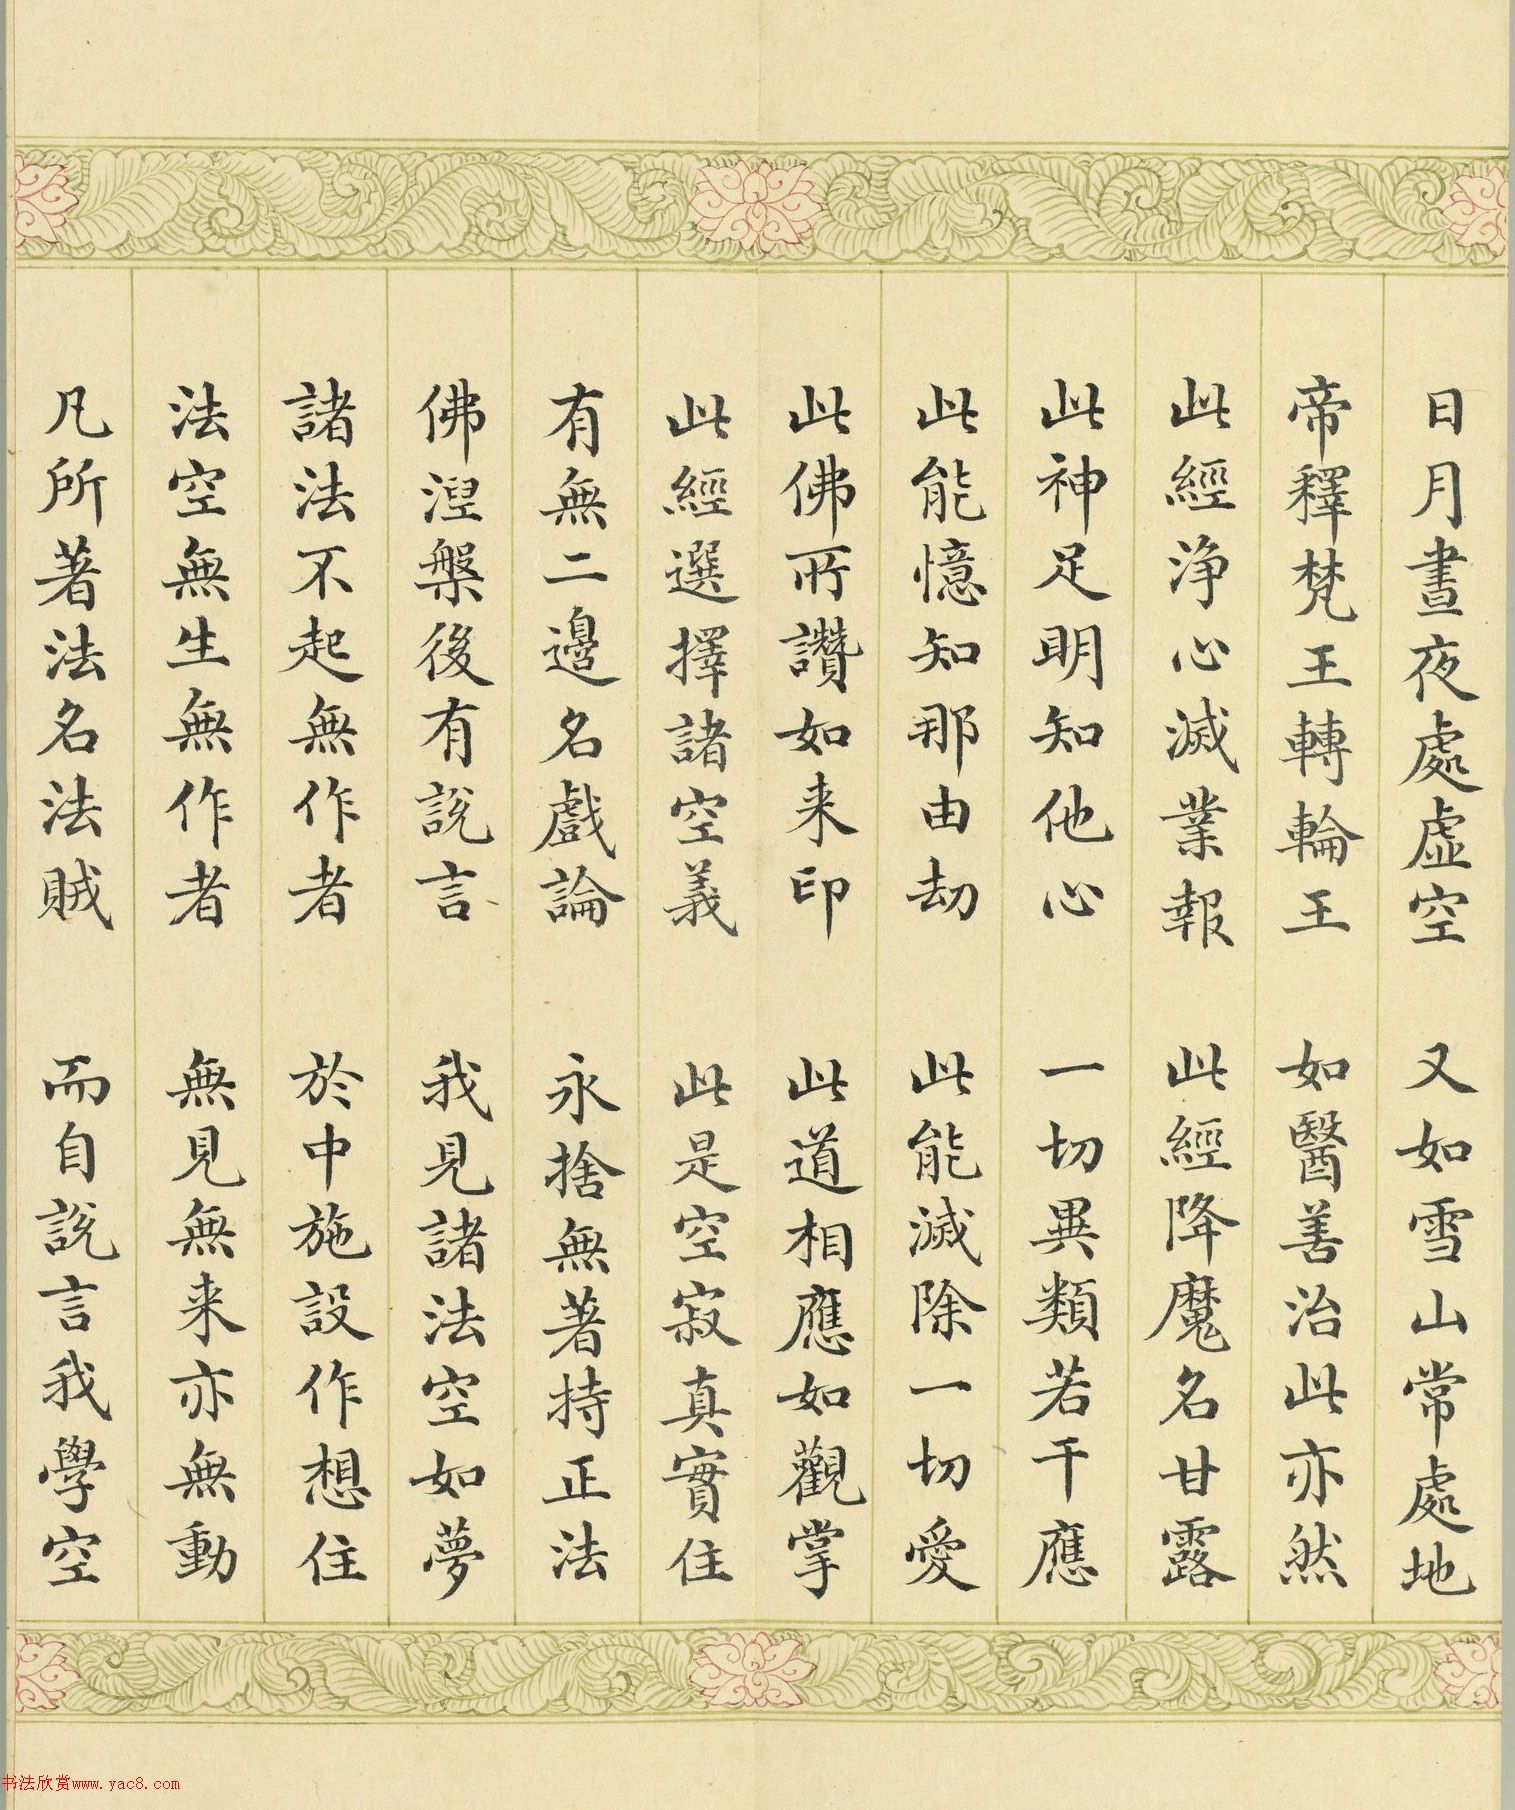 日月晝夜處虛空　又如雪山常處地
帝釋梵王轉輪王　如醫善治此亦然
此經淨心滅業報　此經降魔名甘露
此神足明知他心　一切異類若干應
此能憶知那由劫　此能滅除一切愛
此佛所讚如来印　此道相應如觀掌
此經選擇諸空義　此是空寂真實住
有無二邊名戲論　永捨無著持正法
佛涅槃後有說言　我見諸法空如夢
諸法不起無作者　於中施設作想住
法空無生無作者　無見無来亦無動
凡所著法名法賊　而自說言我學空
书法欣赏www.yac8.com